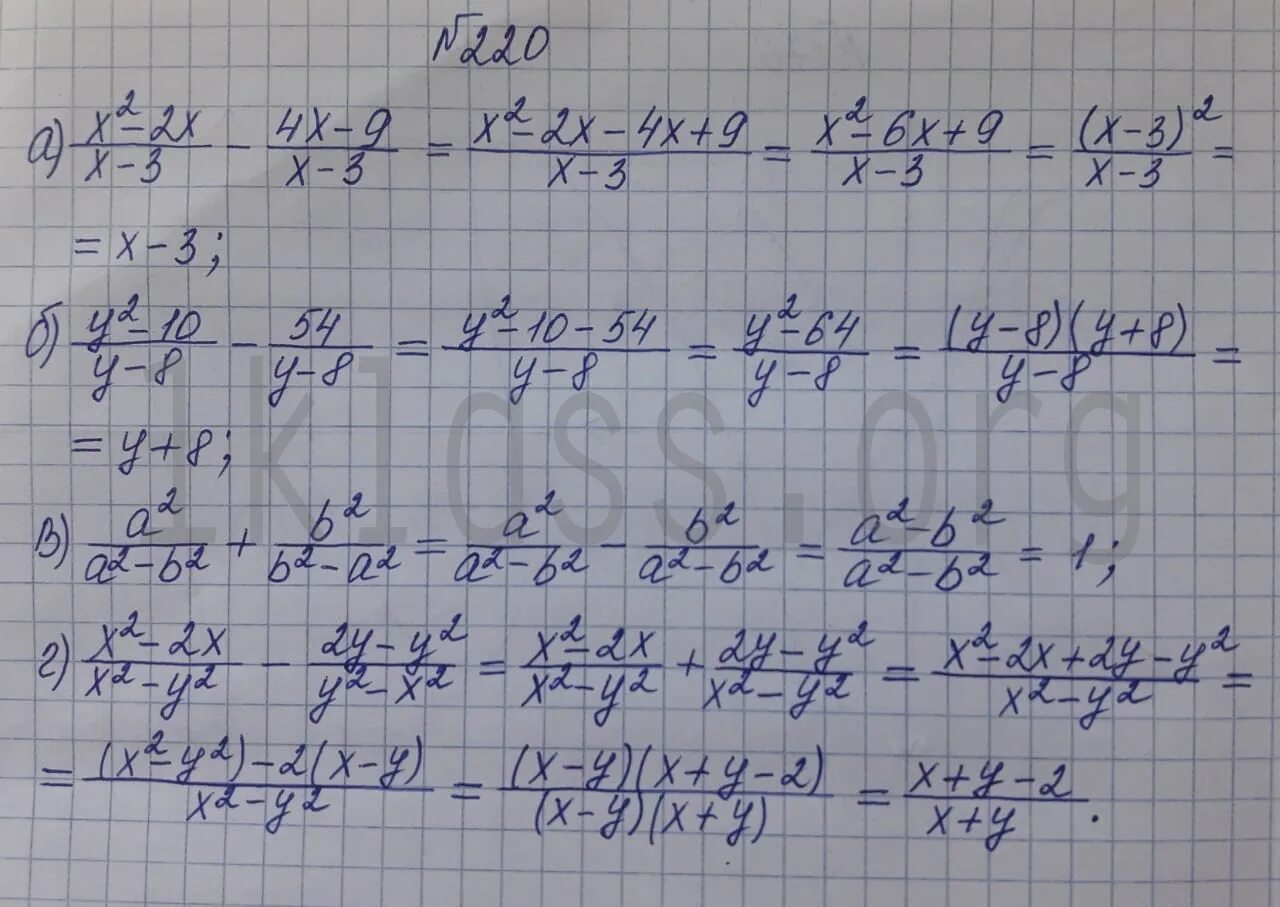 №220
а) (x²-2x)/(x-3) - (4x-9)/(x-3) = (x²-2x-4x+9)/(x-3) = (x²-6x+9)/(x-3) = (x-3)²/(x-3) =
= x-3;
б) (y²-10)/(y-8) - 54/(y-8) = (y²-10-54)/(y-8) = (y²-64)/(y-8) = (y-8)(y+8)/(y-8) =
= y+8;
в) a²/(a²-b²) + b²/(b²-a²) = a²/(a²-b²) - b²/(a²-b²) = (a²-b²)/(a²-b²) = 1;
г) (x²-2x)/(x²-y²) - (2y-y²)/(y²-x²) = (x²-2x)/(x²-y²) + (2y-y²)/(x²-y²) = (x²-2x+2y-y²)/(x²-y²) =
= ((x²-y²)-2(x-y))/(x²-y²) = (x-y)(x+y-2)/((x-y)(x+y)) = (x+y-2)/(x+y).
1klass.org